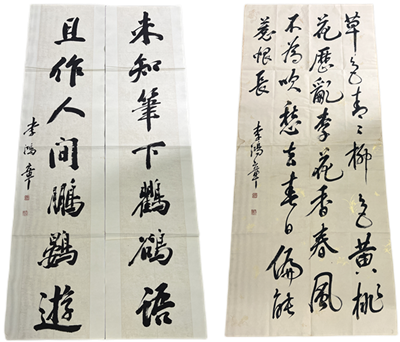 未知筆下鸜鵒語
且作人間鵬鷃遊
李鴻章
草色青々柳色黃桃
花歷亂李花香春風
不為吹愁去春日偏能
惹恨長
李鴻章